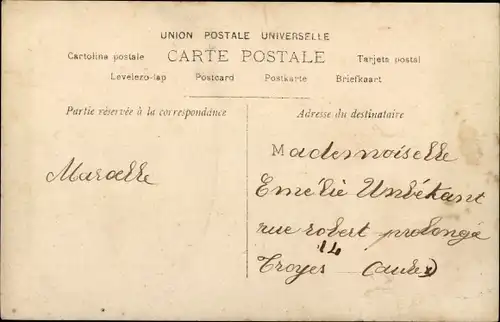 UNION POSTALE UNIVERSELLE
CARTE POSTALE
Cartolina postale
Tarjeta postal
Levelezo-lap Postcard Postkarte Briefkaart
Partie réservée à la correspondance
Adresse du destinataire
Marcelle
Mademoiselle
Emélie Unbékant
rue robert prolongé
14
Troyes (aube)